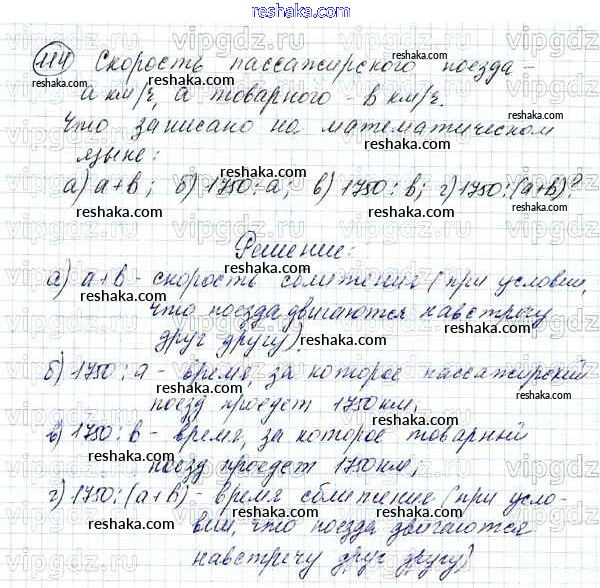 114 Скорость пассажирского поезда -
a км/ч, а товарного - в км/ч.
Что записано на математическом
языке:
а) a+b; б) 1750:a; в) 1750:b; г) 1750:(a+b)?
Решение:
а) a+b - скорость сближения (при условии,
что поезда двигаются навстречу
друг другу).
б) 1750:a - время, за которое пассажирский
поезд проедет 1750 км;
в) 1750:b - время, за которое товарный
поезд проедет 1750 км;
г) 1750:(a+b) - время сближение (при усло-
вии, что поезда двигаются
навстречу друг другу)
reshaka.com
vipgdz.ru